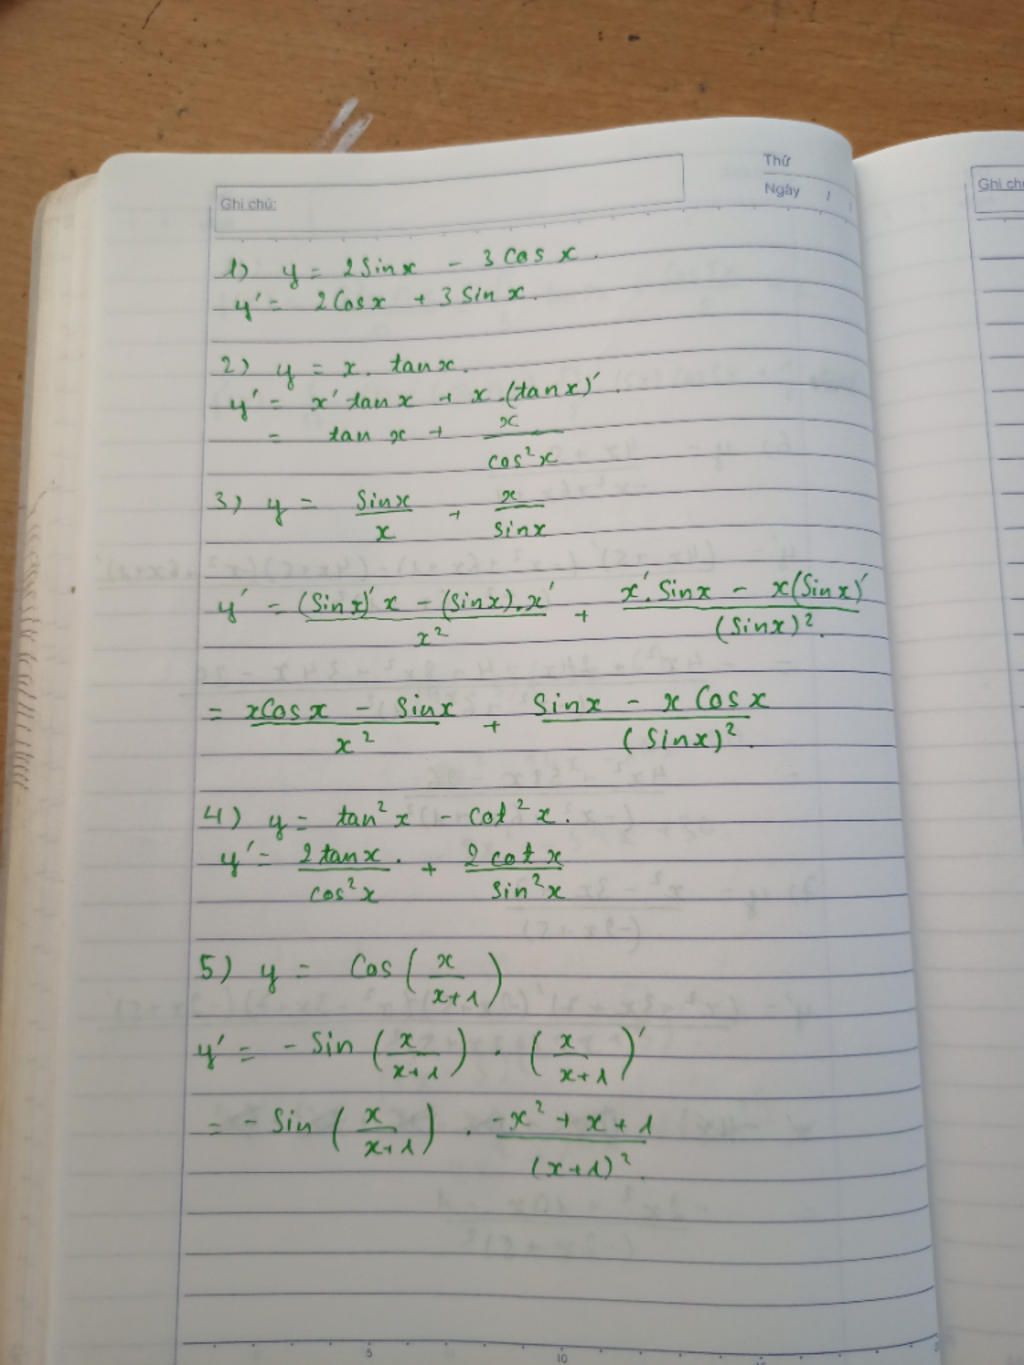 Thứ
Ghi chú:
Ngày / /
Ghi chú
1) y = 2 Sin x - 3 Cos x.
y' = 2 Cos x + 3 Sin x.
2) y = x. tan x.
y' = x' tan x + x.(tan x)'.
= tan x + x/cos²x
3) y = Sin x/x + x/sin x
y' = ((Sin x)' x - (Sin x).x')/x² + (x'. Sin x - x(Sin x)')/(Sin x)².
= (x Cos x - Sin x)/x² + (Sin x - x Cos x)/(Sin x)².
4) y = tan²x - cot²x.
y' = 2 tan x./cos²x + 2 cot x/Sin²x
5) y = Cos (x/(x+1))
y' = - Sin (x/(x+1)) . (x/(x+1))'
= - Sin (x/(x+1)) . (-x² + x + 1)/(x+1)².
5 10